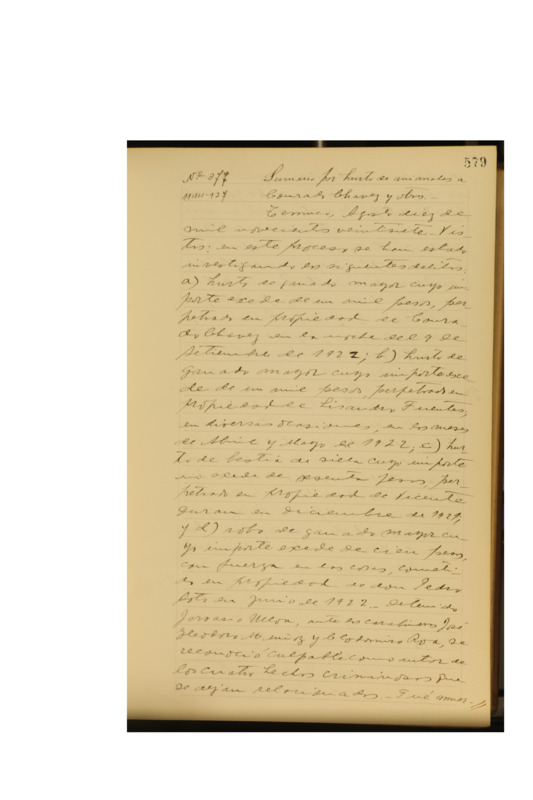 579
Nº 377 Sumario por hurto de animales a
Conrado Chavez y otros.-
Temuco, Agosto diez de
mil novecientos veintisiete. Vis-
tos: en este proceso se han estado
investigando los siguientes delitos:
a) hurto de ganado mayor cuyo im-
porte excede de un mil pesos, per-
petrado en propiedad de Conra-
do Chavez en la noche del 9 de
setiembre de 1922; b) hurto de
ganado mayor cuyo importe exce
de de un mil pesos, perpetrado en
propiedad de Lisandro Fuentes,
en diversas ocasiones, en los meses
de Abril y Mayo de 1922; c) hur-
to de bestia de silla cuyo importe
no excede de pesos, per-
petrado en propiedad de Vicente
Duran en Diciembre de 1921,
y d) robo de ganado mayor cu-
yo importe excede de cien pesos,
con fuerza en las cosas, cometi-
do en propiedad de don Pedro
Soto en Junio de 1922.- Detenido
Ulloa, ante los carabineros José
Eleodoro Muñoz y Clodomiro Roa, se
reconoció culpable como autor de
los cuatro hechos criminosos que
se dejan relacionados.- Fué